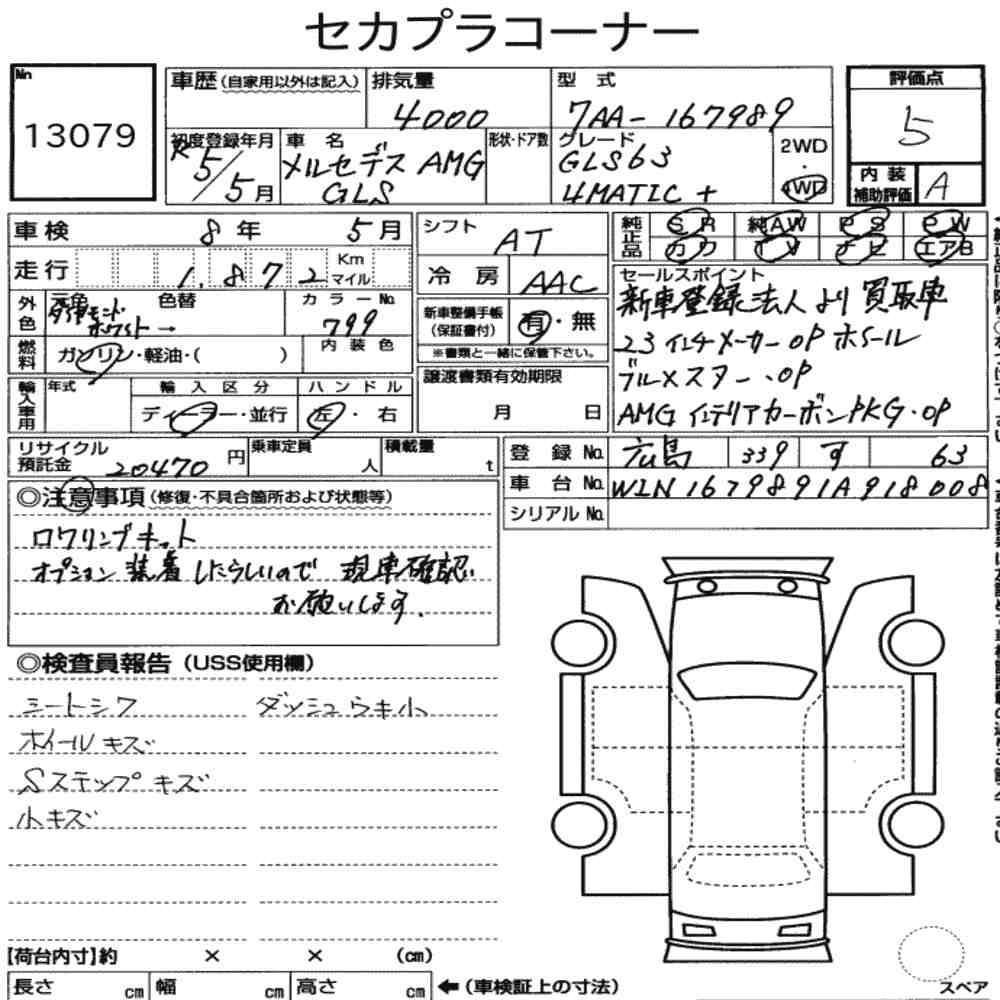 セカプラコーナー
No
13079
車歴(自家用以外は記入)
排気量
4000
型式
7AA-167989
評価点
5
初度登録年月
R5/5月
車名
メルセデスAMG
GLS
形状・ドア数
グレード
GLS63
4MATIC+
2WD
・
4WD
内装
補助評価
A
車検 8年 5月
走行 1,872 Km
マイル
シフト
AT
冷房
AAC
純正品
SR 純AW PS PW
カワ TV ナビ エアB
外色
元色
ホワイト→
色替
カラーNo.
799
燃料
ガソリン・軽油・( )
内装色
新車整備手帳
(保証書付)
有・無
※書類と一緒に保管下さい。
セールスポイント
新車登録法人より買取車
23インチメーカーOPホイール
ブルメスター・OP
AMGインテリアカーボンPKG・OP
輸入車用
年式
輸入区分
ディーラー・並行
ハンドル
左・右
譲渡書類有効期限
月 日
リサイクル
預託金
20470円
乗車定員
人
積載量
t
登録No.
広島 339 す 63
車台No.
W1N1679891A918008
シリアルNo.
◎注意事項(修復・不具合箇所および状態等)
ロワリングキット
オプション装着したらしいので現車確認
お願いします.
◎検査員報告(USS使用欄)
シートシワ ダッシュウキ小
ホイールキズ
Sステップキズ
小キズ
【荷台内寸】約 × × (cm)
長さ cm 幅 cm 高さ cm
←(車検証上の寸法)
スペア